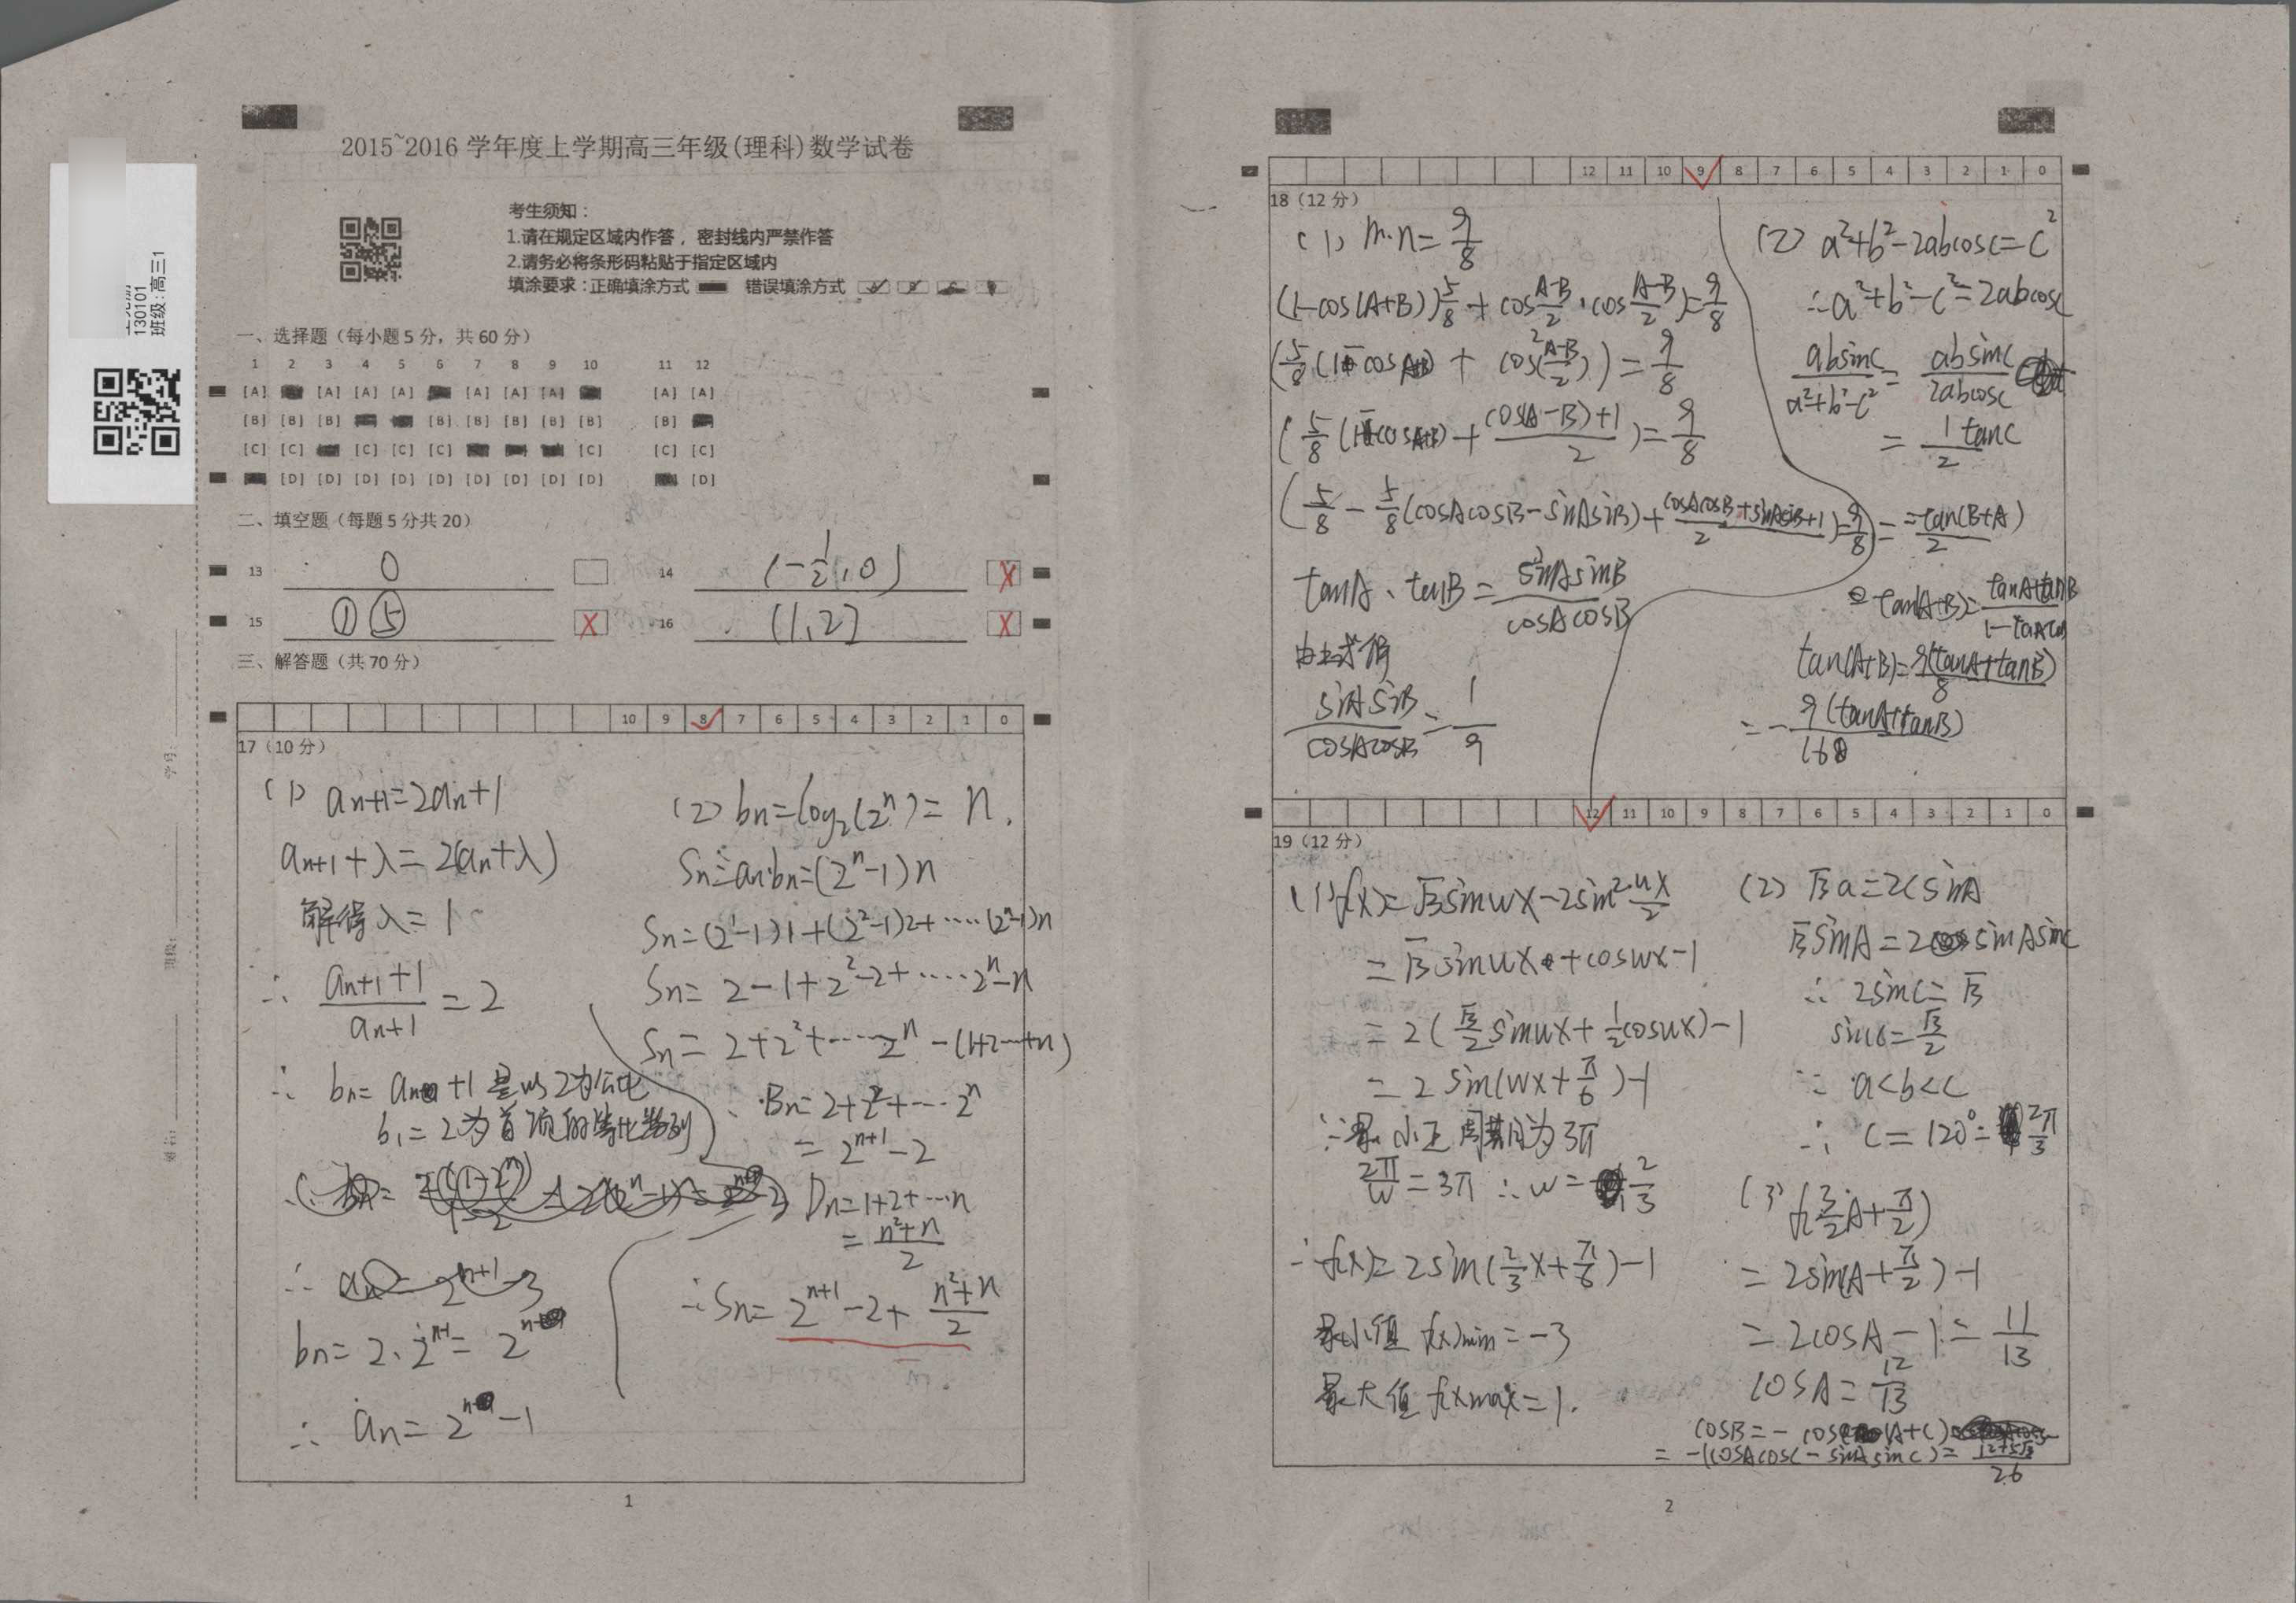 2015~2016 学年度上学期高三年级(理科)数学试卷
130101
班级:高三1
考生须知：
1.请在规定区域内作答，密封线内严禁作答
2.请务必将条形码粘贴于指定区域内
填涂要求：正确填涂方式 错误填涂方式
一、选择题（每小题 5 分，共 60 分）
1 2 3 4 5 6 7 8 9 10 11 12
[A] [A] [A] [A] [A] [A] [A] [A] [A]
[B] [B] [B] [B] [B] [B] [B] [B] [B]
[C] [C] [C] [C] [C] [C] [C] [C]
[D] [D] [D] [D] [D] [D] [D] [D] [D] [D]
二、填空题（每题 5 分共 20）
13 0 14 (-1/2,0)
15 ①⑤ 16 (1,2]
三、解答题（共 70 分）
学号:
班级:
姓名:
10 9 8 7 6 5 4 3 2 1 0
17（10 分）
(1) an+1=2an+1
an+1+λ=2(an+λ)
解得λ=1
∴ (an+1+1)/(an+1)=2
∴ bn=an+1是以2为公比
b1=2为首项的等比数列
bn=2·2^(n-1)=2^n
∴ an=2^n-1
(2) bn=log2(2^n)=n.
Sn=an·bn=(2^n-1)n
Sn=(2^1-1)1+(2^2-1)2+……(2^n-1)n
Sn=2-1+2^2-2+……2^n-n
Sn=2+2^2+……2^n-(1+2…+n)
Bn=2+2^2+…2^n
=2^(n+1)-2
Dn=1+2+…n
=(n²+n)/2
∴Sn=2^(n+1)-2+(n²+n)/2
1
12 11 10 9 8 7 6 5 4 3 2 1 0
18（12 分）
(1) m·n=9/8
(1-cos(A+B))5/8+cos(A-B)/2·cos(A-B)/2)=9/8
(5/8(1-cos(A+B)+cos²(A-B)/2))=9/8
(5/8(1-cos(A+B)+(cos(A-B)+1)/2)=9/8
(5/8-5/8(cosAcosB-sinAsinB)+(cosAcosB+sinAsinB+1)/2)=9/8
tanA·tanB=sinAsinB/cosAcosB
由上式得
sinAsinB/cosAcosB=1/9
(2) a²+b²-2abcosC=c²
∴a²+b²-c²=2abcosC
absinC/(a²+b²-c²)=absinC/2abcosC
=1/2tanC
=-tan(B+A)/2
tan(A+B)=(tanA+tanB)/
tan(A+B)=9(tanA+tanB)/8
=-9(tanA+tanB)/16
12 11 10 9 8 7 6 5 4 3 2 1 0
19（12 分）
(1) f(x)=√3sinwx-2sin²wx/2
=√3sinwx+coswx-1
=2(√3/2sinwx+1/2coswx)-1
=2sin(wx+π/6)-1
∵最小正周期为3π
2π/w=3π ∴w=2/3
∴f(x)=2sin(2/3x+π/6)-1
最小值 f(x)min=-3
最大值 f(x)max=1.
(2) √3a=2csinA
√3sinA=2sinAsinC
∴ 2sinC=√3
sinC=√3/2
∵ a<b<c
∴ C=120°=2π/3
(3) f(3/2A+π/2)
=2sin(A+π/2)-1
=2cosA-1=11/13
cosA=12/13
cosB=-cos(A+C)
=-(cosAcosC-sinAsinC)=(12+5√3)/26
2